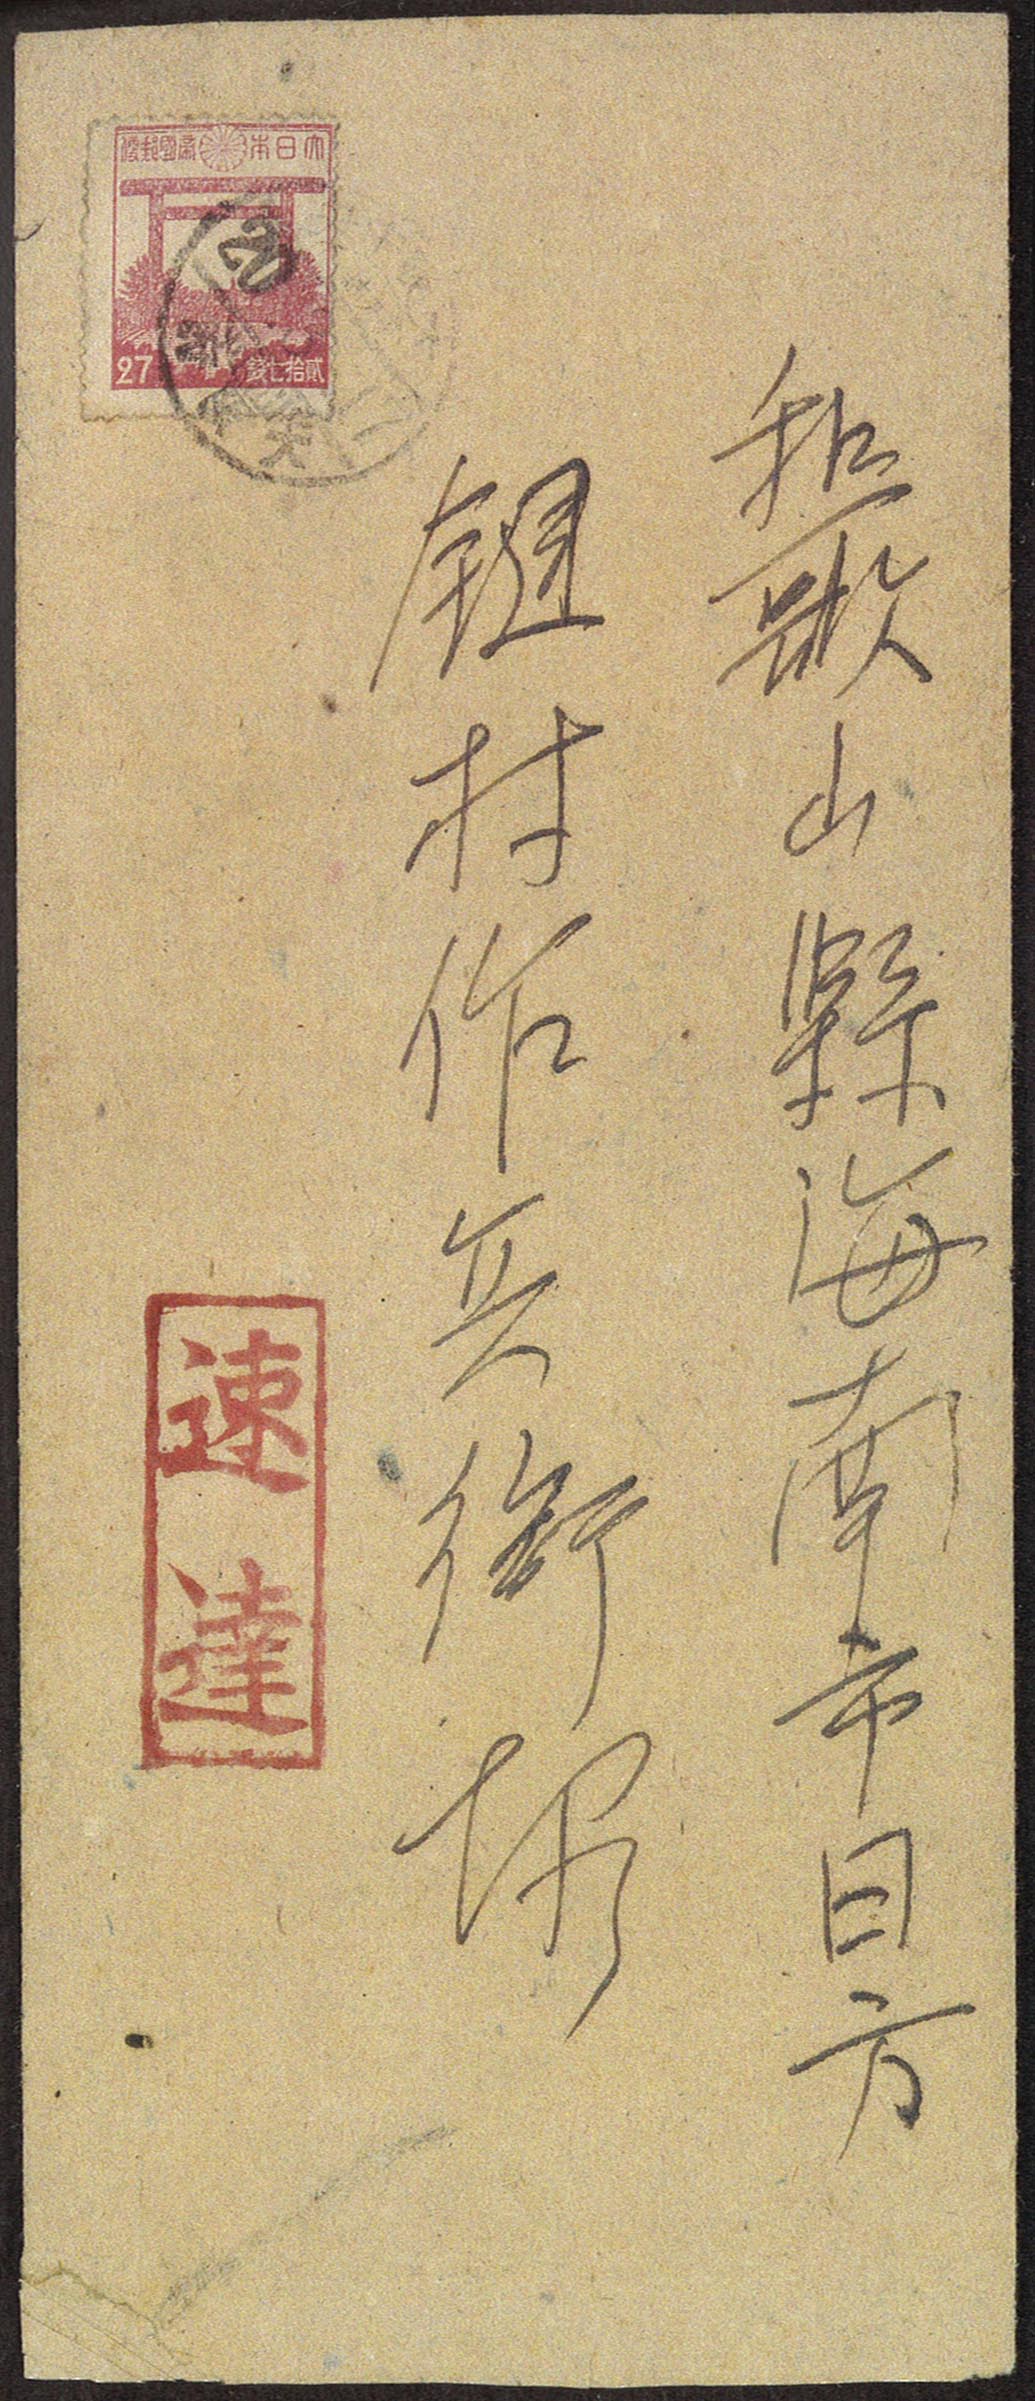 大日本帝國郵便
27 貳拾七錢
20
和歌山縣海南市日方
村作兵衛様
速達